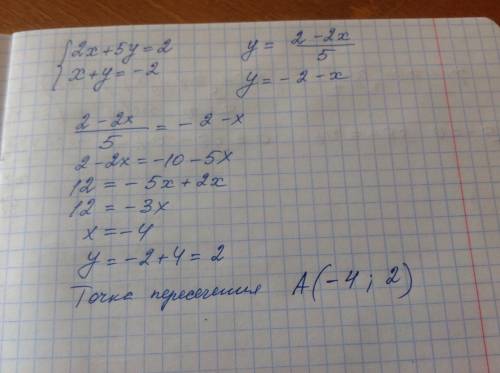 { 2x+5y=2    y = (2-2x)/5
{ x+y=-2    y=-2-x
(2-2x)/5 = -2-x
2-2x=-10-5x
12=-5x+2x
12=-3x
x=-4
y=-2+4=2
Точка пересечения A(-4; 2)